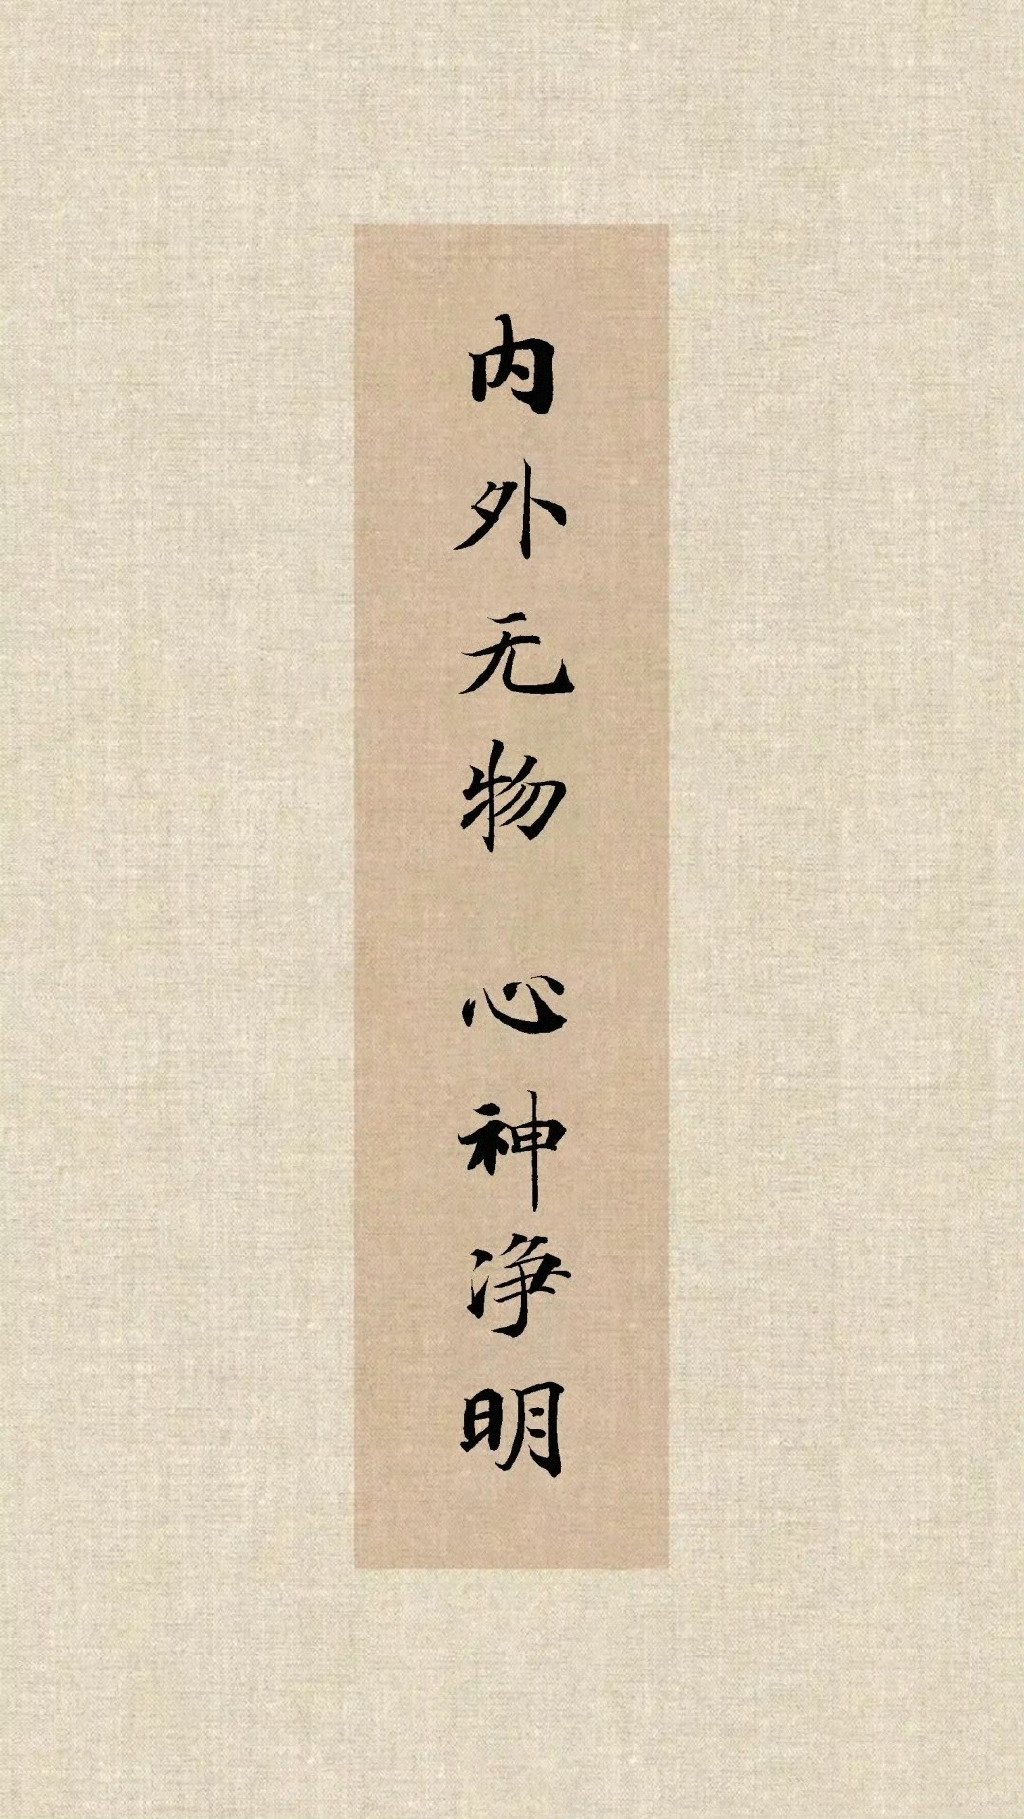 内外无物 心神净明